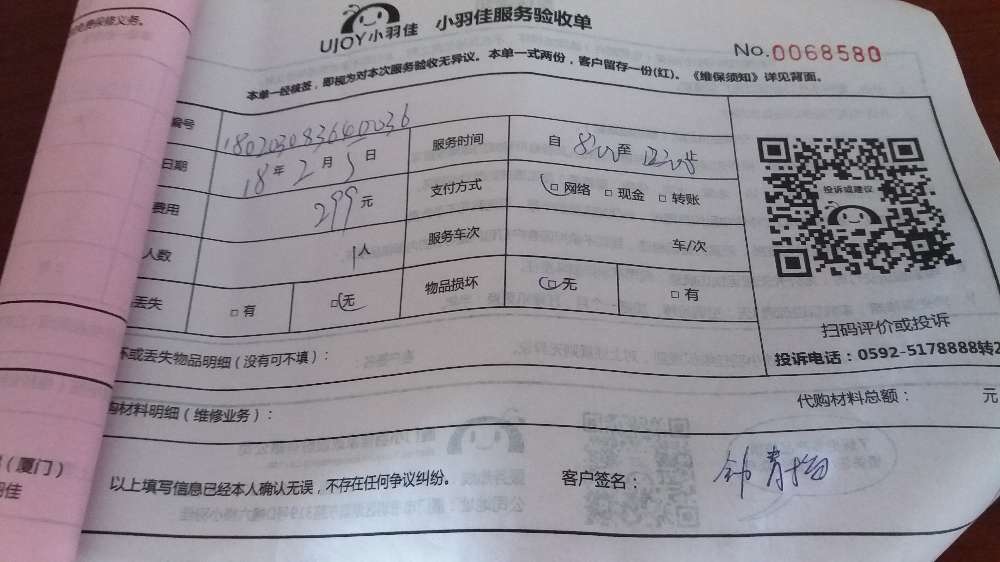 免费保修义务。
UJOY小羽佳 小羽佳服务验收单
No.0068580
本单一经核签，即视为对本次服务验收无异议。本单一式两份，客户留存一份(红)。《维保须知》详见背面。
编号
日期 18年2月5日 服务时间 自 8:00至
费用 299元 支付方式 □网络 □现金 □转账
人数 1人 服务车次 车/次
丢失 □有 □无 物品损坏 □无 □有
投诉或建议
扫码评价或投诉
投诉电话：0592-5178888转2
坏或丢失物品明细(没有可不填)：
购材料明细(维修业务)： 代购材料总额： 元
(厦门)
羽佳
以上填写信息已经本人确认无误，不存在任何争议纠纷。 客户签名：